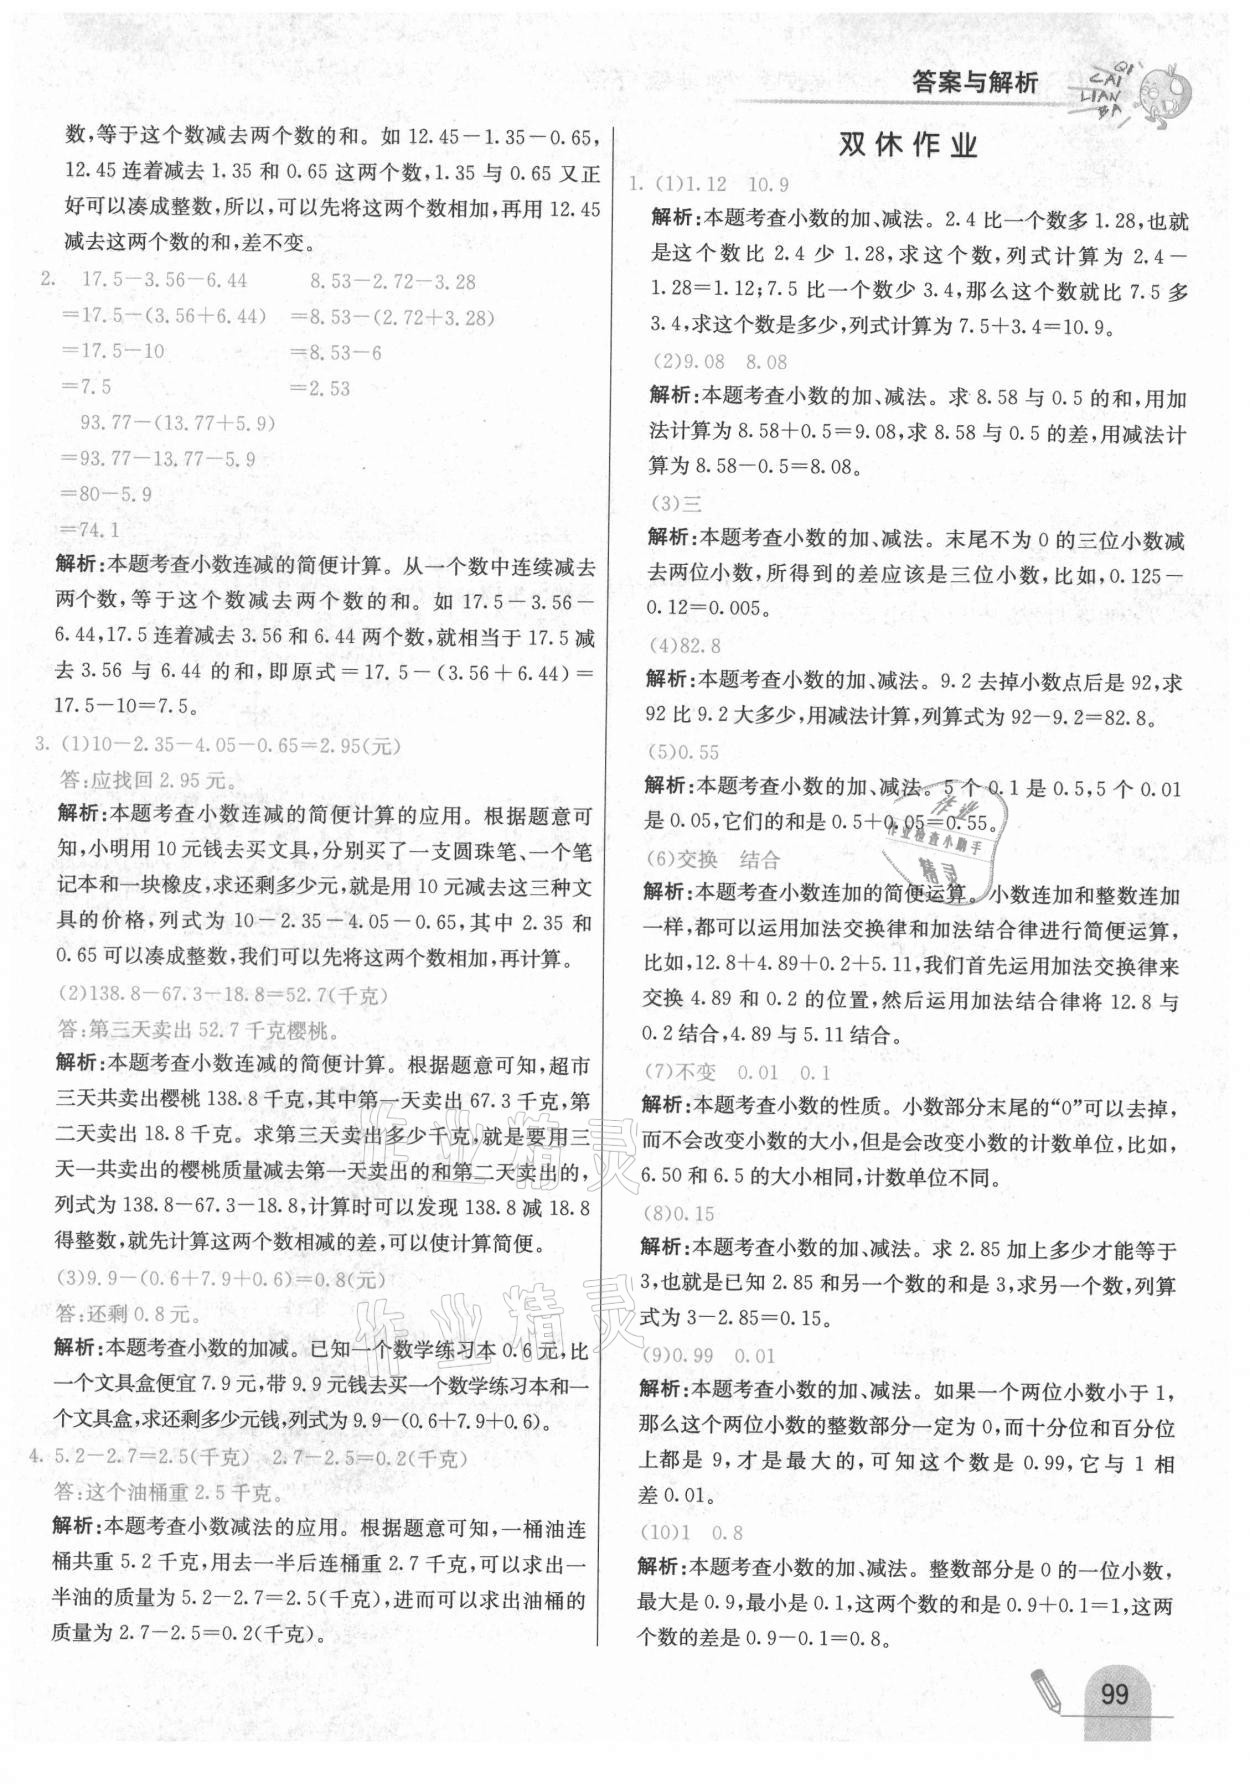 答案与解析
QI
CAI
LIAN
BA
数,等于这个数减去两个数的和。如 12.45-1.35-0.65,
12.45 连着减去 1.35 和 0.65 这两个数,1.35 与 0.65 又正
好可以凑成整数,所以,可以先将这两个数相加,再用 12.45
减去这两个数的和,差不变。
2. 17.5-3.56-6.44 8.53-2.72-3.28
=17.5-(3.56+6.44) =8.53-(2.72+3.28)
=17.5-10 =8.53-6
=7.5 =2.53
93.77-(13.77+5.9)
=93.77-13.77-5.9
=80-5.9
=74.1
解析:本题考查小数连减的简便计算。从一个数中连续减去
两个数,等于这个数减去两个数的和。如 17.5-3.56-
6.44,17.5 连着减去 3.56 和 6.44 两个数,就相当于 17.5 减
去 3.56 与 6.44 的和,即原式=17.5-(3.56+6.44)=
17.5-10=7.5。
3. (1)10-2.35-4.05-0.65=2.95(元)
答:应找回 2.95 元。
解析:本题考查小数连减的简便计算的应用。根据题意可
知,小明用 10 元钱去买文具,分别买了一支圆珠笔、一个笔
记本和一块橡皮,求还剩多少元,就是用 10 元减去这三种文
具的价格,列式为 10-2.35-4.05-0.65,其中 2.35 和
0.65 可以凑成整数,我们可以先将这两个数相加,再计算。
(2)138.8-67.3-18.8=52.7(千克)
答:第三天卖出 52.7 千克樱桃。
解析:本题考查小数连减的简便计算。根据题意可知,超市
三天共卖出樱桃 138.8 千克,其中第一天卖出 67.3 千克,第
二天卖出 18.8 千克。求第三天卖出多少千克,就是要用三
天一共卖出的樱桃质量减去第一天卖出的和第二天卖出的,
列式为 138.8-67.3-18.8,计算时可以发现 138.8 减 18.8
得整数,就先计算这两个数相减的差,可以使计算简便。
(3)9.9-(0.6+7.9+0.6)=0.8(元)
答:还剩 0.8 元。
解析:本题考查小数的加减。已知一个数学练习本 0.6 元,比
一个文具盒便宜 7.9 元,带 9.9 元钱去买一个数学练习本和一
个文具盒,求还剩多少元钱,列式为 9.9-(0.6+7.9+0.6)。
4. 5.2-2.7=2.5(千克) 2.7-2.5=0.2(千克)
答:这个油桶重 2.5 千克。
解析:本题考查小数减法的应用。根据题意可知,一桶油连
桶共重 5.2 千克,用去一半后连桶重 2.7 千克,可以求出一
半油的质量为 5.2-2.7=2.5(千克),进而可以求出油桶的
质量为 2.7-2.5=0.2(千克)。
双休作业
1. (1)1.12 10.9
解析:本题考查小数的加、减法。2.4 比一个数多 1.28,也就
是这个数比 2.4 少 1.28,求这个数,列式计算为 2.4-
1.28=1.12;7.5 比一个数少 3.4,那么这个数就比 7.5 多
3.4,求这个数是多少,列式计算为 7.5+3.4=10.9。
(2)9.08 8.08
解析:本题考查小数的加、减法。求 8.58 与 0.5 的和,用加
法计算为 8.58+0.5=9.08,求 8.58 与 0.5 的差,用减法计
算为 8.58-0.5=8.08。
(3)三
解析:本题考查小数的加、减法。末尾不为 0 的三位小数减
去两位小数,所得到的差应该是三位小数,比如,0.125-
0.12=0.005。
(4)82.8
解析:本题考查小数的加、减法。9.2 去掉小数点后是 92,求
92 比 9.2 大多少,用减法计算,列算式为 92-9.2=82.8。
(5)0.55
解析:本题考查小数的加、减法。5 个 0.1 是 0.5,5 个 0.01
是 0.05,它们的和是 0.5+0.05=0.55。
(6)交换 结合
解析:本题考查小数连加的简便运算。小数连加和整数连加
一样,都可以运用加法交换律和加法结合律进行简便运算,
比如,12.8+4.89+0.2+5.11,我们首先运用加法交换律来
交换 4.89 和 0.2 的位置,然后运用加法结合律将 12.8 与
0.2 结合,4.89 与 5.11 结合。
(7)不变 0.01 0.1
解析:本题考查小数的性质。小数部分末尾的“0”可以去掉,
而不会改变小数的大小,但是会改变小数的计数单位,比如,
6.50 和 6.5 的大小相同,计数单位不同。
(8)0.15
解析:本题考查小数的加、减法。求 2.85 加上多少才能等于
3,也就是已知 2.85 和另一个数的和是 3,求另一个数,列算
式为 3-2.85=0.15。
(9)0.99 0.01
解析:本题考查小数的加、减法。如果一个两位小数小于 1,
那么这个两位小数的整数部分一定为 0,而十分位和百分位
上都是 9,才是最大的,可知这个数是 0.99,它与 1 相
差 0.01。
(10)1 0.8
解析:本题考查小数的加、减法。整数部分是 0 的一位小数,
最大是 0.9,最小是 0.1,这两个数的和是 0.9+0.1=1,这两
个数的差是 0.9-0.1=0.8。
作业
作业检查小助手
精灵
作业精灵
作业精灵
99